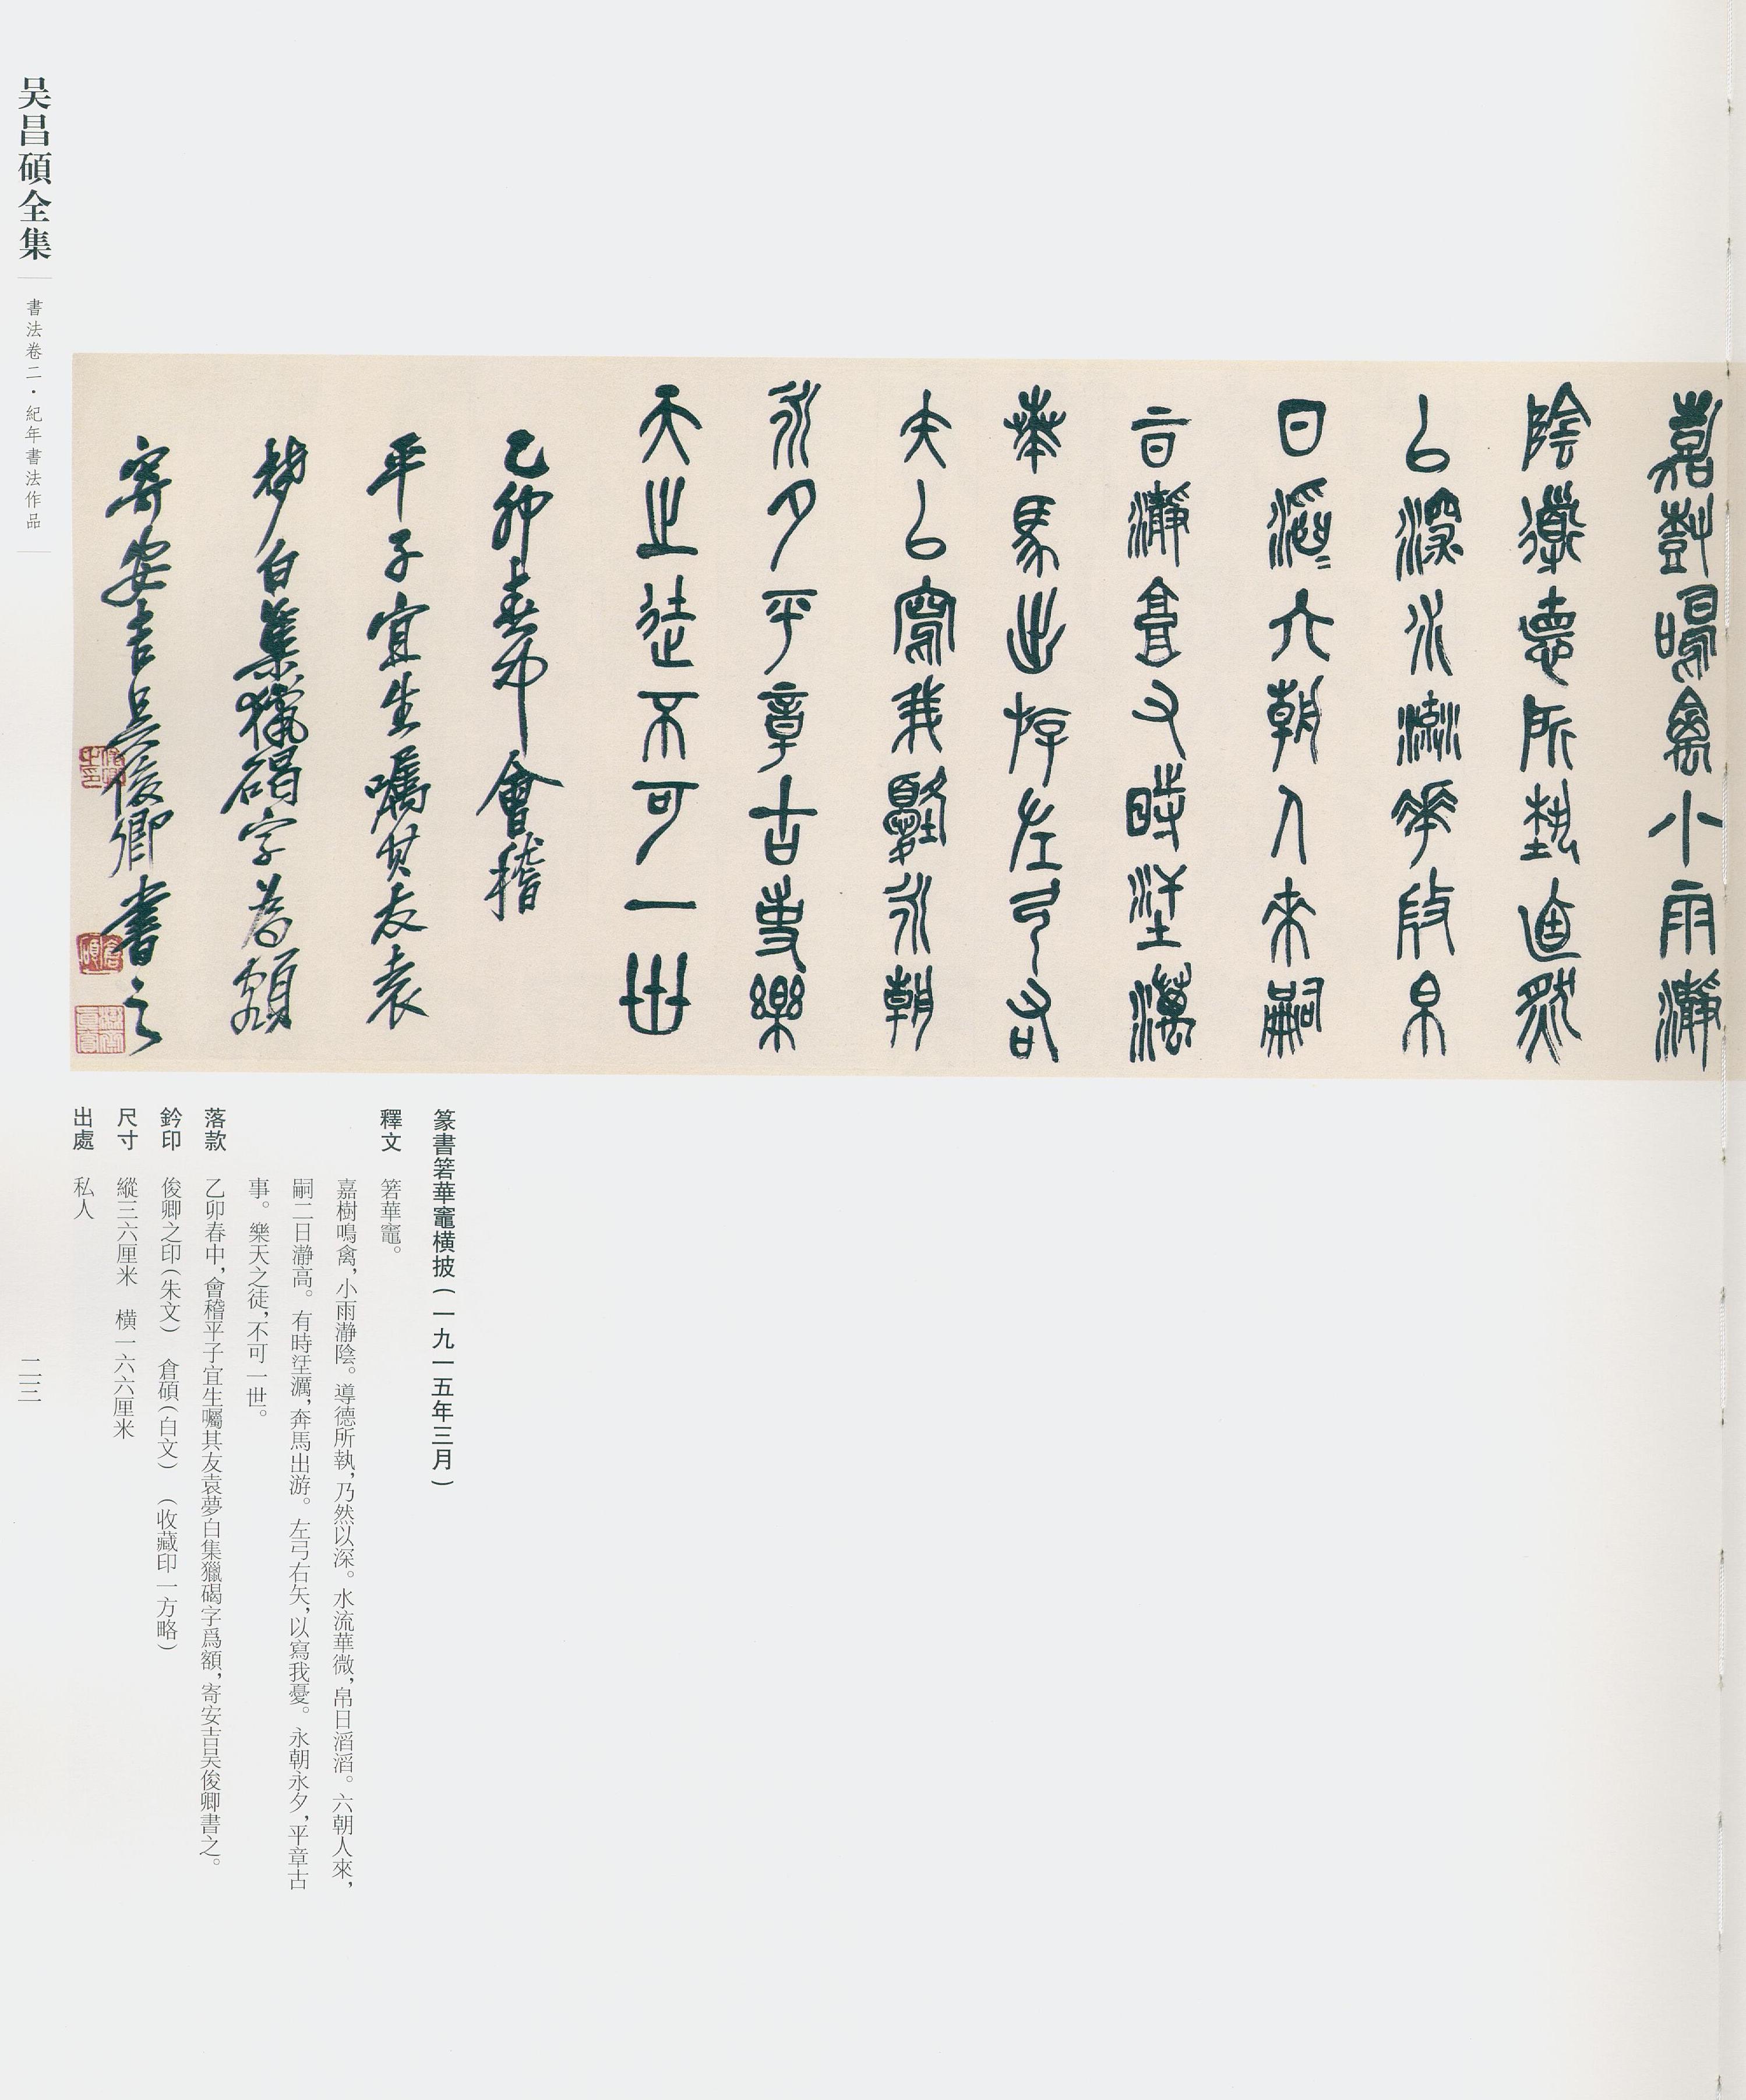 嘉樹鳴禽小雨瀞
陰導德所執迺然
以深水流華㣲帛
日滔〻六朝人來嗣
二日瀞高又時𣴠澫
奔馬出游左弓右
矢以寫我憂永朝
永夕平章古事樂
天之徒不可一世
乙卯春中會稽
平子宜生囑其友袁
夢白集獵碣字為額
寄安吉吳俊卿書之
俊卿之印
倉碩
篆書箬華竈橫披(一九一五年三月)
釋文 箬華竈。
嘉樹鳴禽,小雨瀞陰。導德所執,乃然以深。水流華微,帛日滔滔。六朝人來,
嗣二日瀞高。有時𣴠澫,奔馬出游。左弓右矢,以寫我憂。永朝永夕,平章古
事。樂天之徒,不可一世。
落款 乙卯春中,會稽平子宜生囑其友袁夢白集獵碣字爲額,寄安吉吴俊卿書之。
鈐印 俊卿之印(朱文) 倉碩(白文) (收藏印一方略)
尺寸 縱三六厘米 橫一六六厘米
出處 私人
吴昌碩全集
書法卷二·紀年書法作品
二三